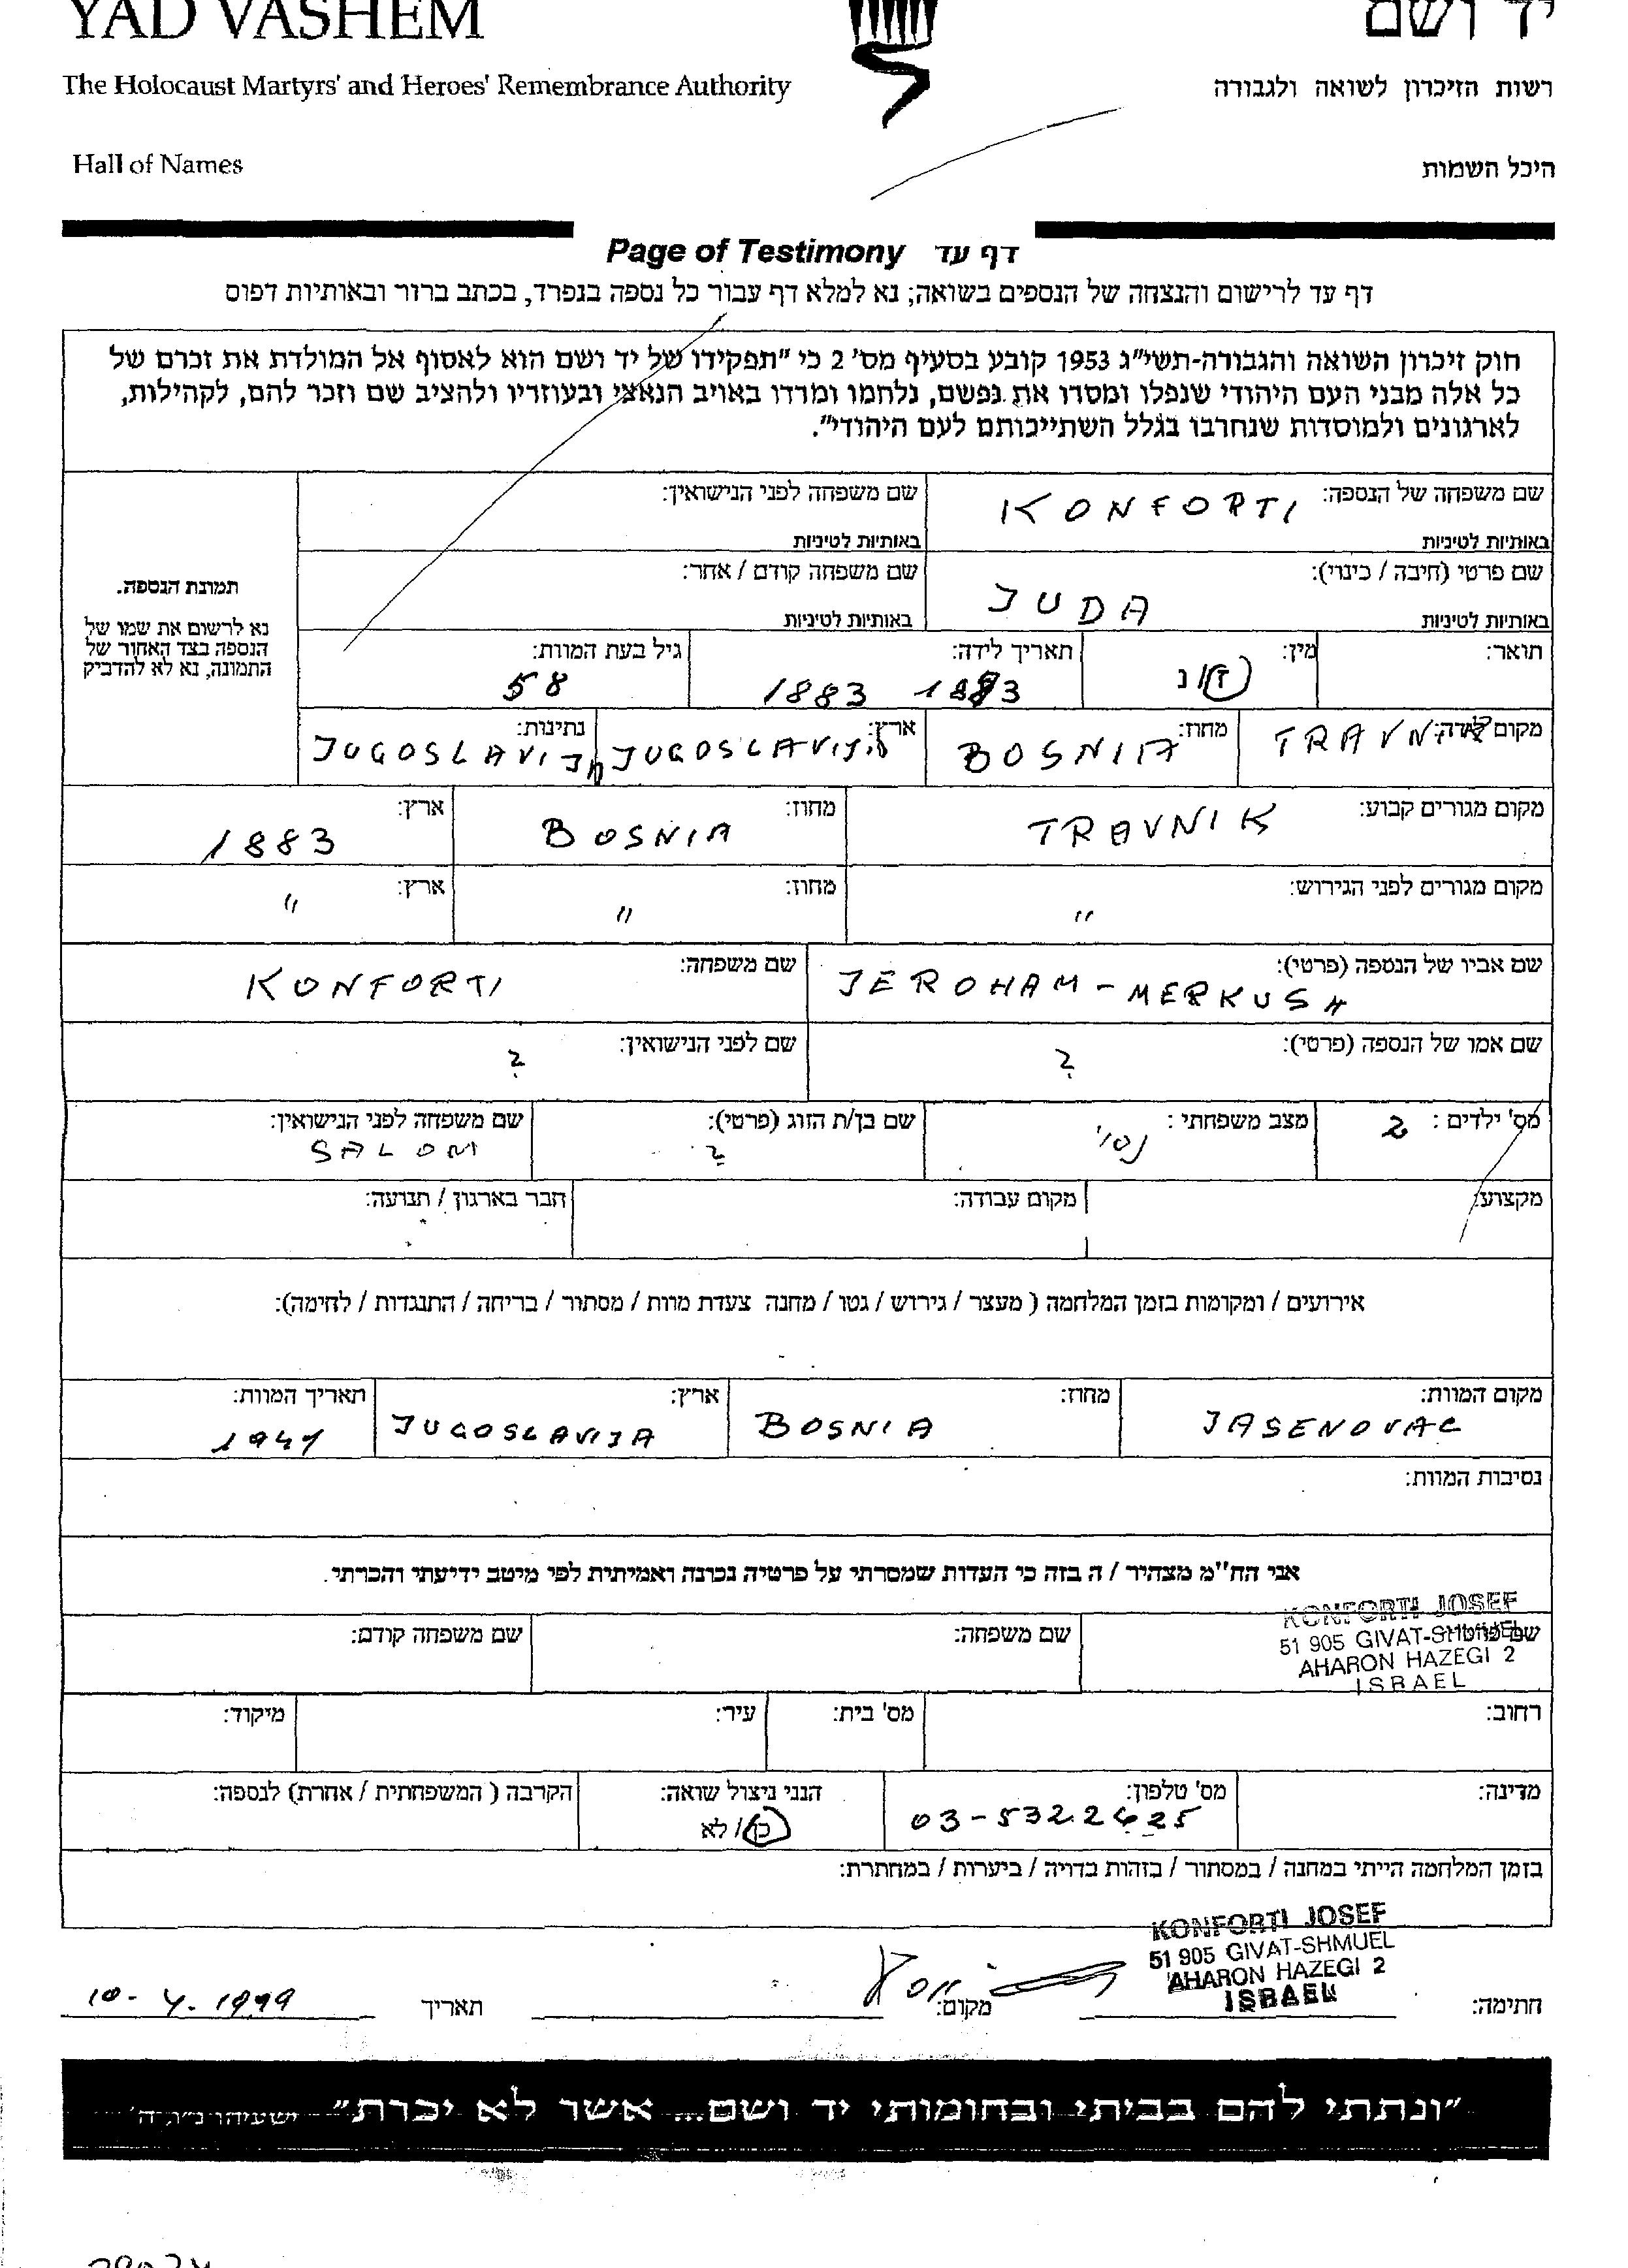 YAD VASHEM יד ושם
The Holocaust Martyrs' and Heroes' Remembrance Authority רשות הזיכרון לשואה ולגבורה
Hall of Names היכל השמות
Page of Testimony דף עד
דף עד לרישום והנצחה של הנספים בשואה; נא למלא דף עבור כל נספה בנפרד, בכתב ברור ובאותיות דפוס
חוק זיכרון השואה והגבורה-תשי"ג 1953 קובע בסעיף מס' 2 כי "תפקידו של יד ושם הוא לאסוף אל המולדת את זכרם של
כל אלה מבני העם היהודי שנפלו ומסרו את נפשם, נלחמו ומרדו באויב הנאצי ובעוזריו ולהציב שם וזכר להם, לקהילות,
לארגונים ולמוסדות שנחרבו בגלל השתייכותם לעם היהודי".
שם משפחה של הנספה: KONFORTI שם משפחה לפני הנישואין:
באותיות לטיניות באותיות לטיניות
שם פרטי (חיבה / כינוי): JUDA שם משפחה קודם / אחר:
באותיות לטיניות באותיות לטיניות
תמונת הנספה.
נא לרשום את שמו של
הנספה בצד האחור של
התמונה, נא לא להדביק
תואר: מין: ז/נ תאריך לידה: 1883 1883 גיל בעת המוות: 58
מקום לידה: מחוז: BOSNIA ארץ: JUGOSLAVIJA נתינות: JUGOSLAVIJA
מקום מגורים קבוע: TRAVNIK מחוז: BOSNIA ארץ: 1883
מקום מגורים לפני הגירוש: " מחוז: " ארץ: "
שם אביו של הנספה (פרטי): JEROHAM - MERKUSH שם משפחה: KONFORTI
שם אמו של הנספה (פרטי): ? שם לפני הנישואין: ?
מס' ילדים: 2 מצב משפחתי: נשוי שם בן/ת הזוג (פרטי): ? שם משפחה לפני הנישואין: SALOM
מקצוע: מקום עבודה: חבר בארגון / תנועה:
אירועים / ומקומות בזמן המלחמה ( מעצר / גירוש / גטו / מחנה צעדת מוות / מסתור / בריחה / התנגדות / לחימה):
מקום המוות: JASENOVAC מחוז: BOSNIA ארץ: JUGOSLAVIJA תאריך המוות: 1941
נסיבות המוות:
אני הח"מ מצהיר / ה בזה כי העדות שמסרתי על פרטיה נכונה ואמיתית לפי מיטב ידיעתי והכרתי.
KONFORTI JOSEF
51 905 GIVAT-SHMUEL
AHARON HAZEGI 2
ISRAEL
שם פרטי: שם משפחה: שם משפחה קודם:
רחוב: מס' בית: עיר: מיקוד:
מדינה: מס' טלפון: 03-5322625 הנני ניצול שואה: כן / לא הקרבה ( המשפחתית / אחרת) לנספה:
בזמן המלחמה הייתי במחנה / במסתור / בזהות בדויה / ביערות / במחתרת:
KONFORTI JOSEF
51 905 GIVAT-SHMUEL
AHARON HAZEGI 2
ISRAEL
חתימה: מקום: תאריך 10-4-1999
"ונתתי להם בביתי ובחומותי יד ושם... אשר לא יכרת" ישעיהו נ"ו ה'